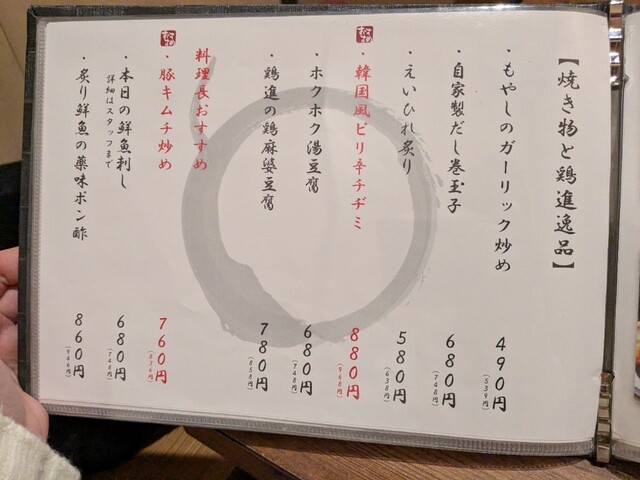 【焼き物と鶏進逸品】
・もやしのガーリック炒め
490円
(539円)
・自家製だし巻玉子
680円
(748円)
・えいひれ炙り
580円
(638円)
・韓国風ピリ辛チヂミ
880円
(968円)
・ホクホク湯豆腐
680円
(748円)
・鶏進の鶏麻婆豆腐
780円
(858円)
料理長おすすめ
・豚キムチ炒め
760円
(836円)
・本日の鮮魚刺し
詳細はスタッフまで
680円
(748円)
・炙り鮮魚の薬味ポン酢
860円
(946円)